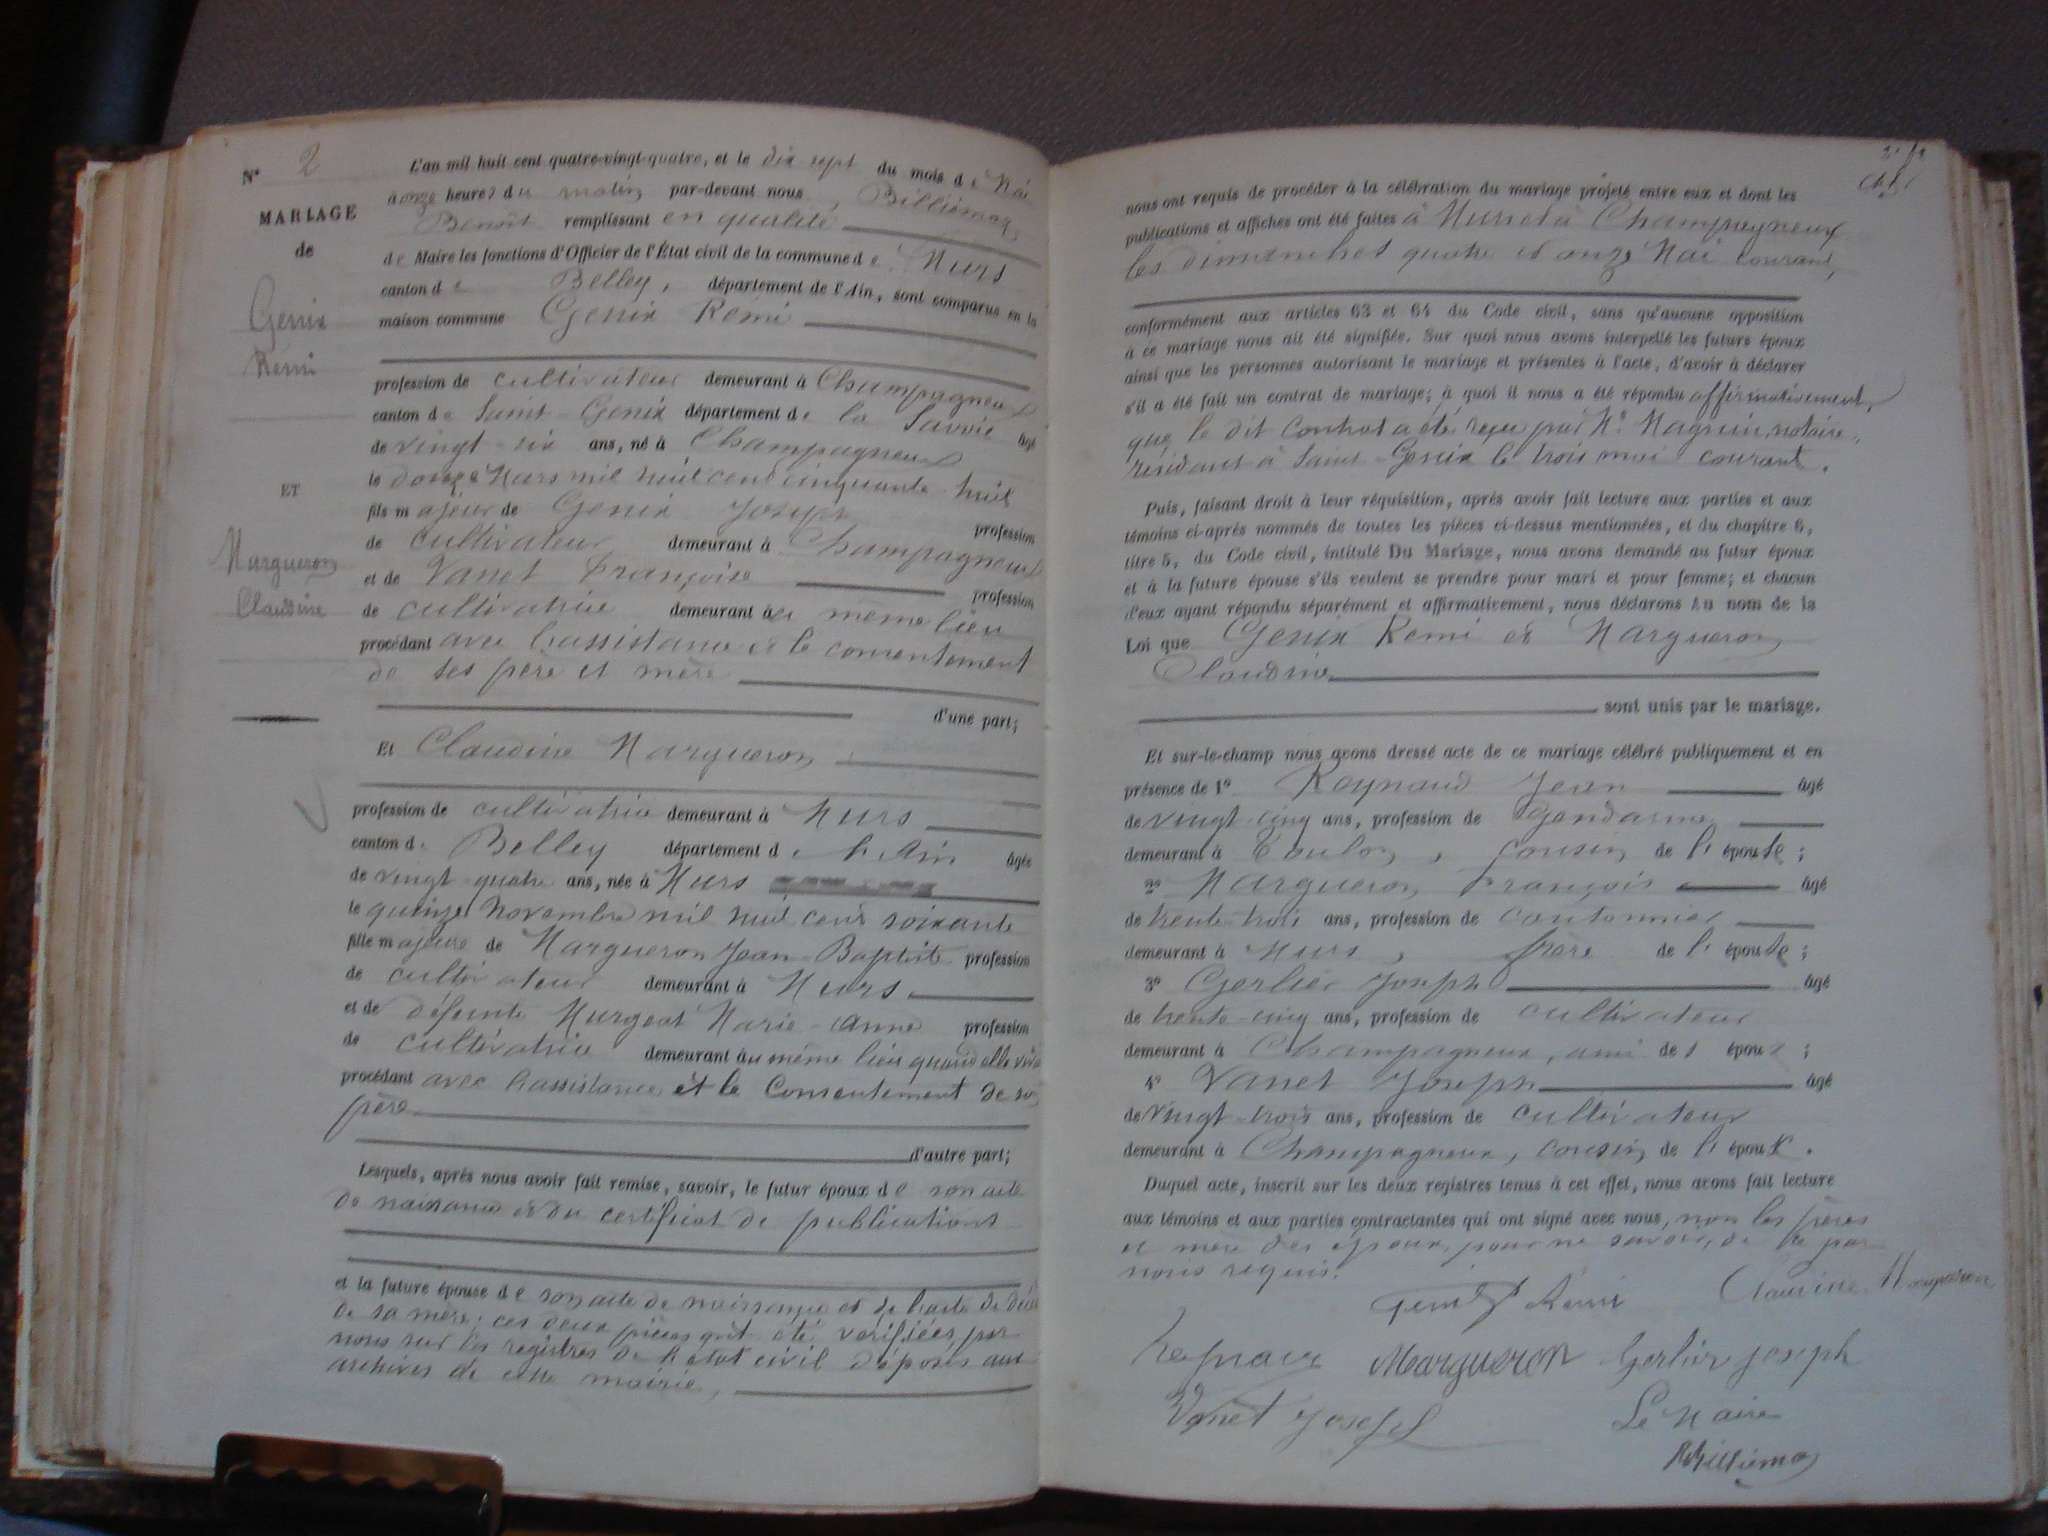 N° 2
MARIAGE
de
Genix
Remi
ET
Margueron
Claudine
L'an mil huit cent quatre-vingt-quatre, et le dix sept du mois de Mai
à onze heures du matin par-devant nous, Billiemaz
Benoit remplissant en qualité
de Maire les fonctions d'Officier de l'État civil de la commune de Murs
canton de Belley, département de l'Ain, sont comparus en la
maison commune Genix Remi
profession de cultivateur demeurant à Champagneux
canton de Saint-Genix département de la Savoie âgé
de vingt-six ans, né à Champagneux
le douze Mars mil huit cent cinquante-huit
fils majeur de Genix Joseph profession
de cultivateur demeurant à Champagneux
et de Vanet Françoise profession
de cultivatrice demeurant au même lieu
procédant avec l'assistance et le consentement
de ses père et mère
d'une part;
Et Claudine Margueron
profession de cultivatrice demeurant à Murs
canton de Belley département de l'Ain âgée
de vingt-quatre ans, née à Murs
le quinze Novembre mil huit cent soixante
fille majeure de Margueron Jean-Baptiste profession
de cultivateur demeurant à Murs
et de défunte Murgeat Marie-Anne profession
de cultivatrice demeurant au même lieu quand elle vivait
procédant avec l'assistance et le Consentement de son
père
d'autre part;
Lesquels, après nous avoir fait remise, savoir, le futur époux de son acte
de naissance et du certificat de publications
et la future épouse de son acte de naissance et de l'acte de décès
de sa mère; ces deux pièces ont été vérifiées par
nous sur les registres de l'état civil déposés aux
archives de cette mairie,
nous ont requis de procéder à la célébration du mariage projeté entre eux et dont les
publications et affiches ont été faites à Murs et à Champagneux
les dimanches quatre et onze Mai courant,
conformément aux articles 63 et 64 du Code civil, sans qu'aucune opposition
à ce mariage nous ait été signifiée. Sur quoi nous avons interpellé les futurs époux
ainsi que les personnes autorisant le mariage et présentes à l'acte, d'avoir à déclarer
s'il a été fait un contrat de mariage; à quoi il nous a été répondu affirmativement,
que le dit Contrat a été reçu par Me Magnin, notaire,
résidant à Saint-Genix le trois mai courant.
Puis, faisant droit à leur réquisition, après avoir fait lecture aux parties et aux
témoins ci-après nommés de toutes les pièces ci-dessus mentionnées, et du chapitre 6,
titre 5, du Code civil, intitulé Du Mariage, nous avons demandé au futur époux
et à la future épouse s'ils veulent se prendre pour mari et pour femme; et chacun
d'eux ayant répondu séparément et affirmativement, nous déclarons au nom de la
Loi que Genix Remi et Margueron
Claudine
sont unis par le mariage.
Et sur-le-champ nous avons dressé acte de ce mariage célébré publiquement et en
présence de 1° Reynaud Jean âgé
de vingt-cinq ans, profession de Gendarme
demeurant à Toulon, cousin de l'épouse;
2° Margueron François âgé
de trente-trois ans, profession de cantonnier
demeurant à Murs, frère de l'épouse;
3° Gerlier Joseph âgé
de trente-cinq ans, profession de cultivateur
demeurant à Champagneux, ami des époux;
4° Vanet Joseph âgé
de vingt-trois ans, profession de cultivateur
demeurant à Champagneux, cousin de l'époux.
Duquel acte, inscrit sur les deux registres tenus à cet effet, nous avons fait lecture
aux témoins et aux parties contractantes qui ont signé avec nous, non les pères
et mère des époux, pour ne savoir, de ce par
nous requis.
Genix Remi Claudine Margueron
Margueron Gerlier joseph
Vanet Joseph Le Maire
Billiemaz